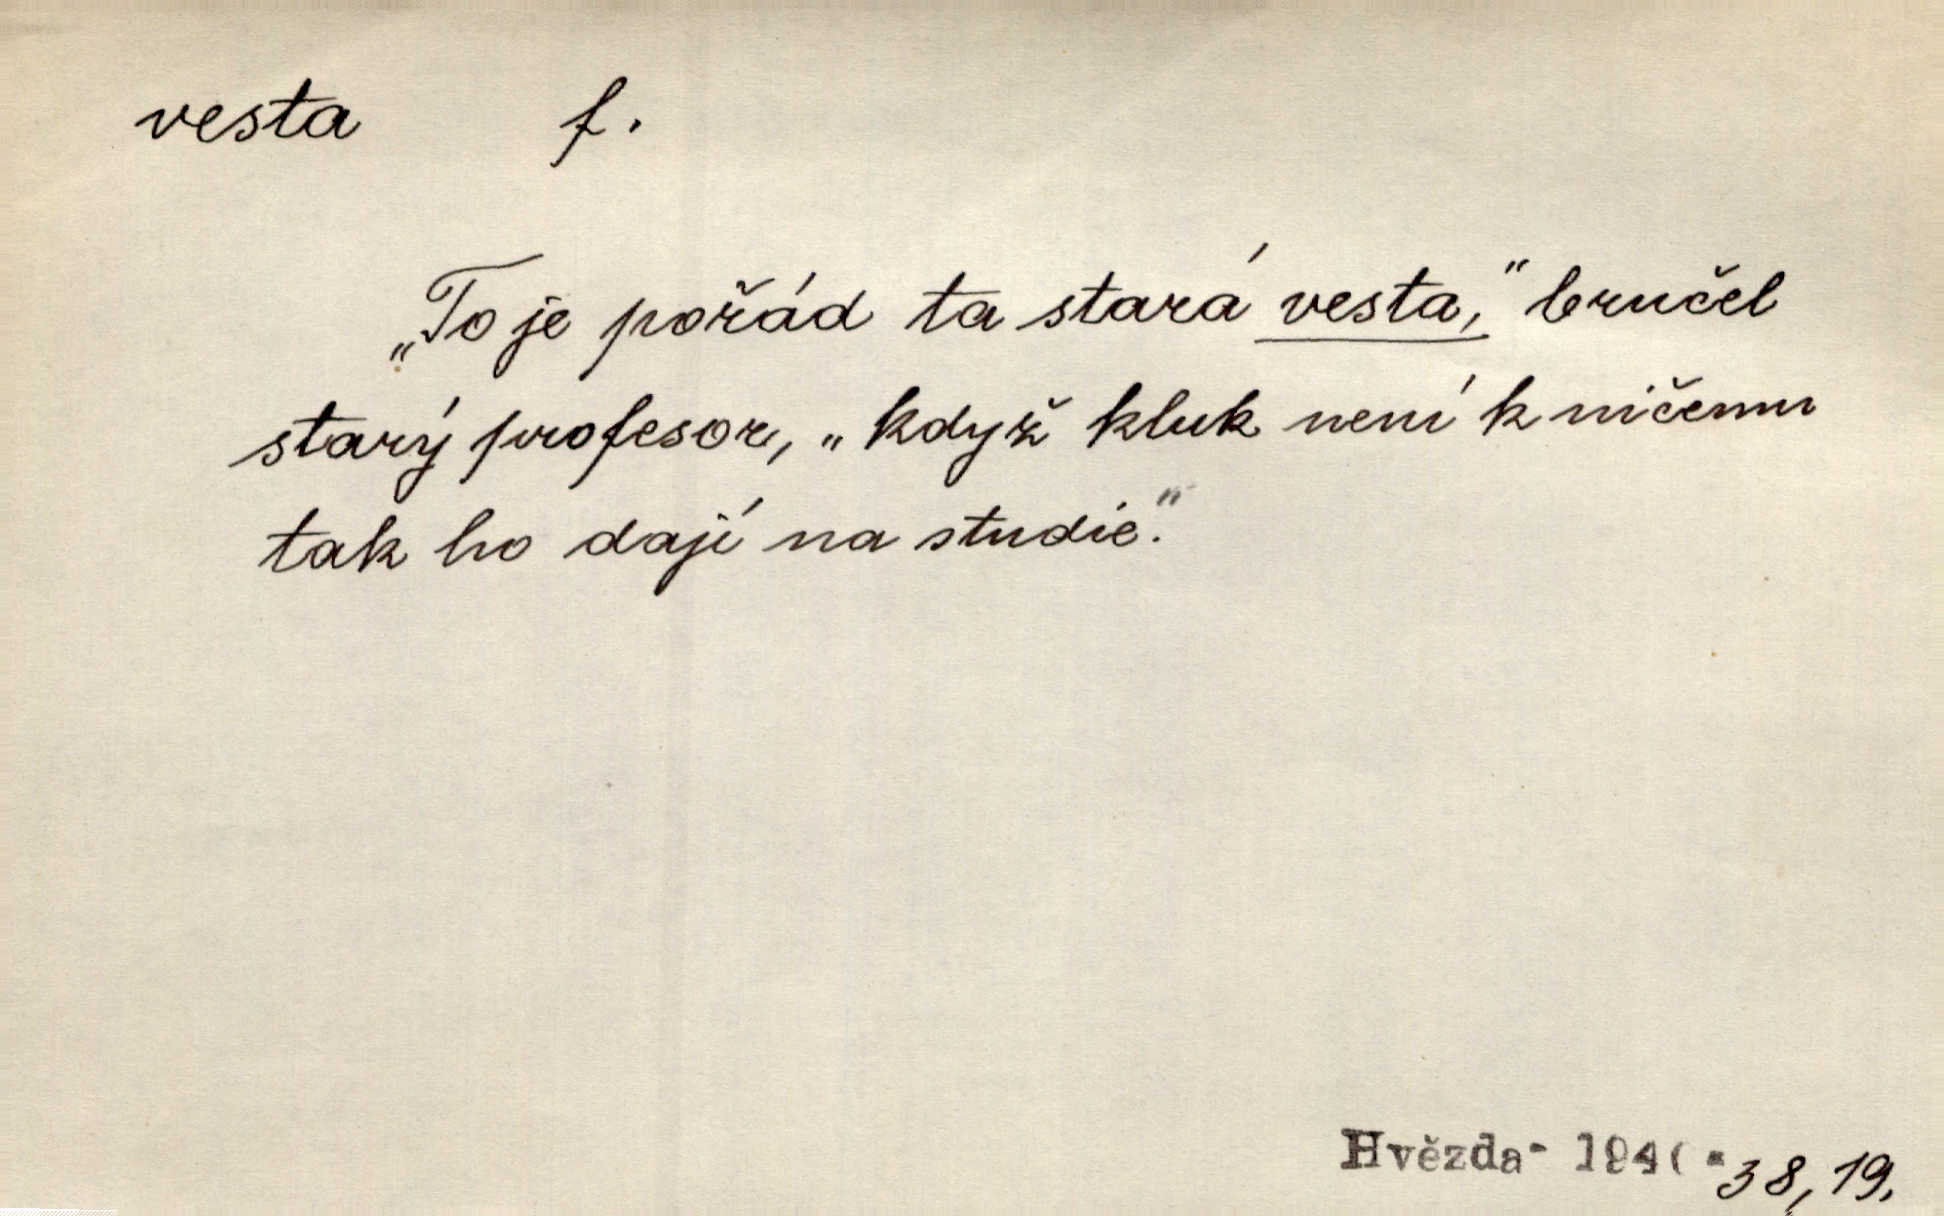 vesta f.
„To je pořád ta stará vesta,“ bručel
starý profesor, „když kluk není k ničemu
tak ho dají na studie.“
Hvězda - 38, 19.